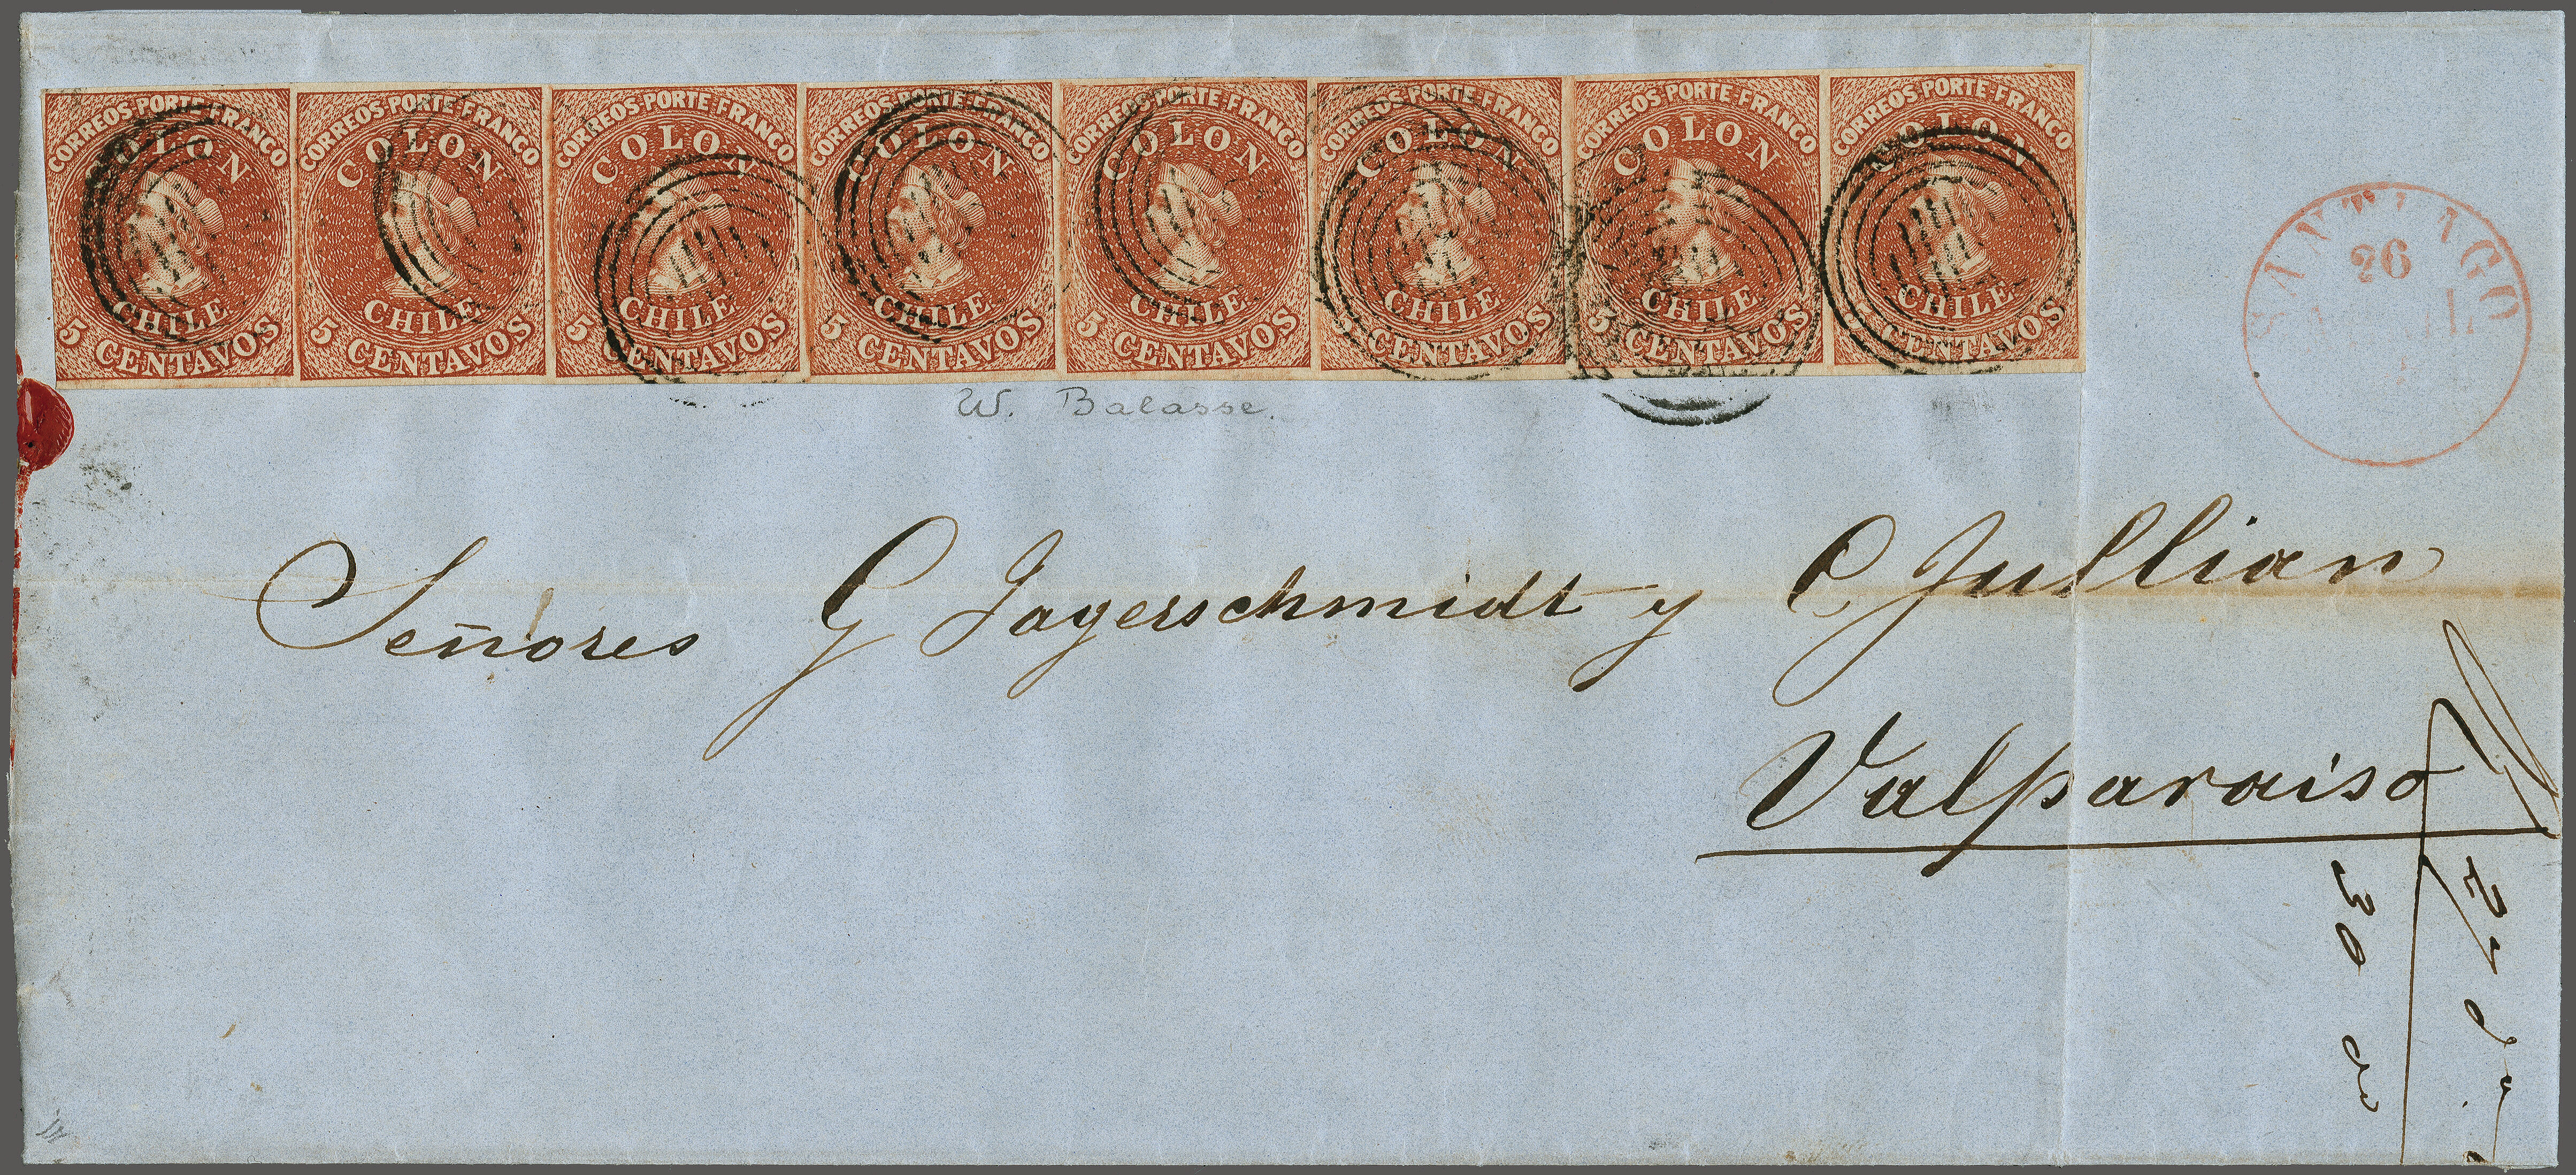 CORREOS PORTE FRANCO CORREOS PORTE FRANCO CORREOS PORTE FRANCO CORREOS PORTE FRANCO CORREOS PORTE FRANCO CORREOS PORTE FRANCO CORREOS PORTE FRANCO CORREOS PORTE FRANCO
COLON COLON COLON COLON COLON COLON COLON COLON
CHILE CHILE CHILE CHILE CHILE CHILE CHILE CHILE
5 CENTAVOS 5 CENTAVOS 5 CENTAVOS 5 CENTAVOS 5 CENTAVOS 5 CENTAVOS 5 CENTAVOS 5 CENTAVOS
SANTIAGO
26
W. Balasse.
Señores G Jagerschmidt y C. Jullian
Valparaiso
30